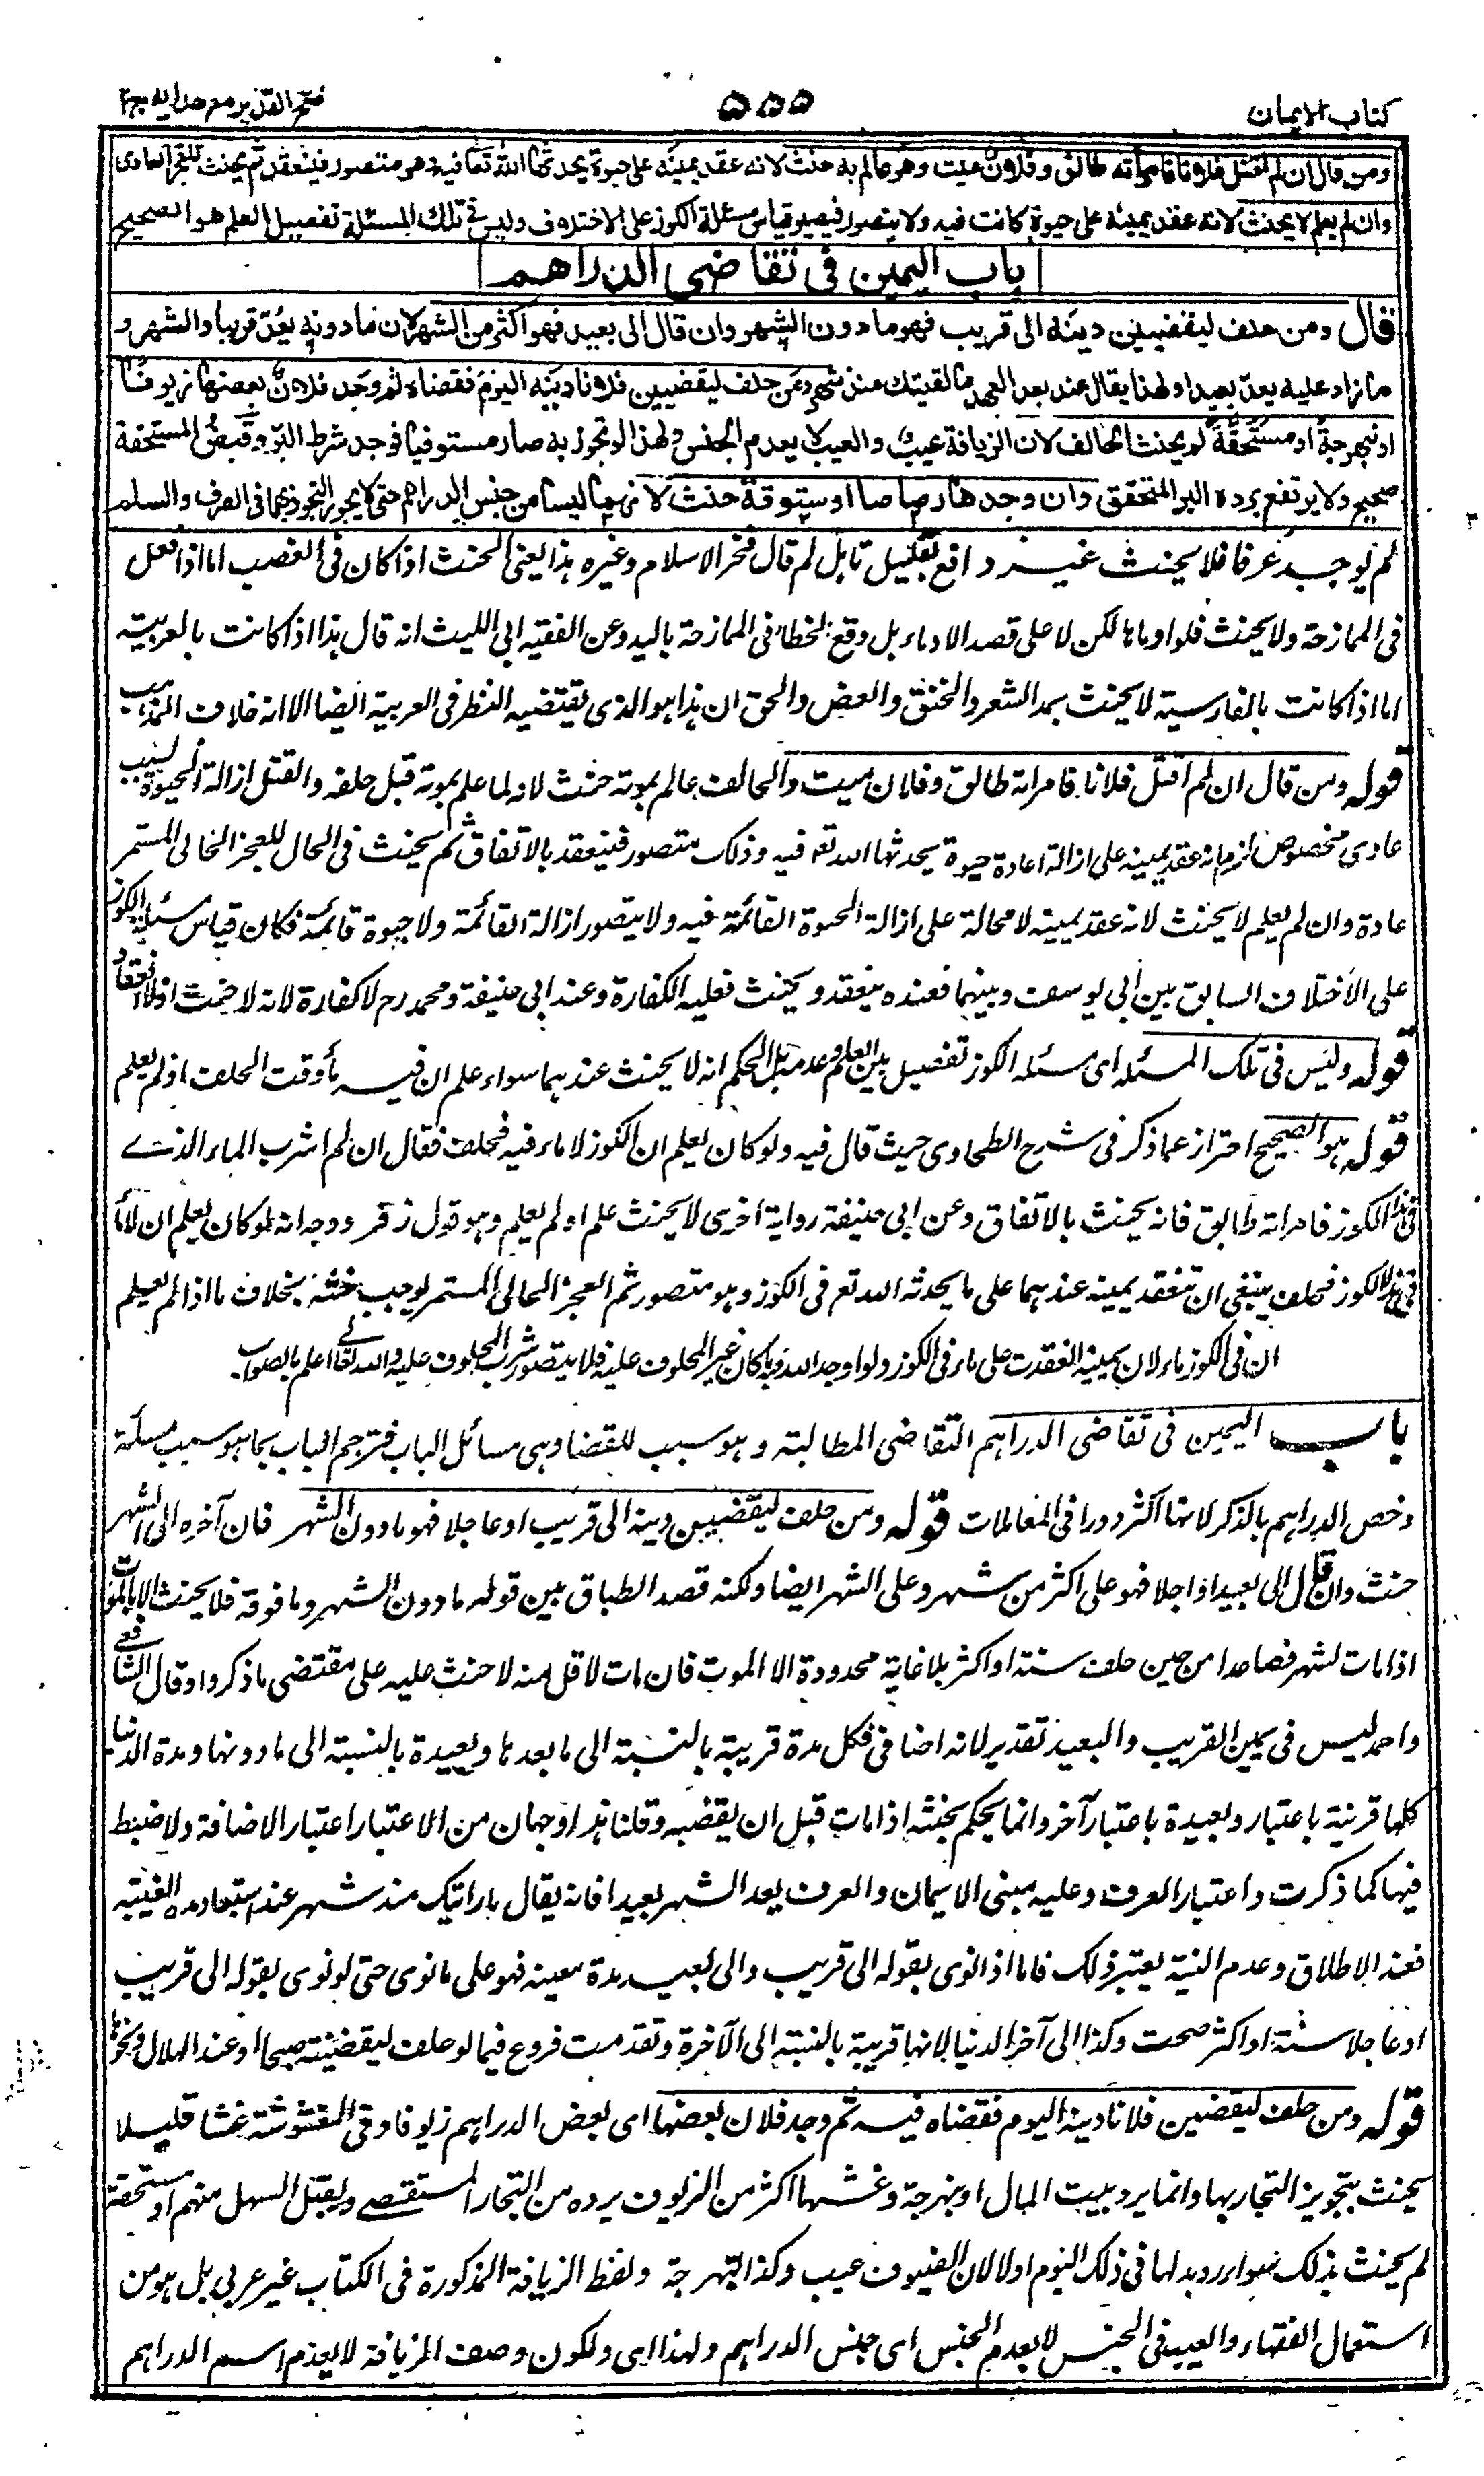 كتاب الايمان
۵۵۵
فتح القدير مع هدايه ج۲
ومن قال ان لم اقتل فلانا فامرأته طالق وفلان ميت وهو عالم به حنث لانه عقد يمينه على حيوة يحدثها الله تعا فيه وهى متصور فينعقد ثم يحنث للعجز العادى
وان لم يعلم لا يحنث لانه عقد يمينه على حيوة كانت فيه ولا يتصور فيصير قياس مسئلة الكوز على الاختلاف وليس فى تلك المسئلة تفصيل العلم هو الصحيح
باب اليمين فى تقاضى الدراهم
قال ومن حلف ليقضين دينه الى قريب فهو ما دون الشهر وان قال الى بعيد فهو اكثر من الشهر لان ما دونه يعد قريبا والشهر و
ما زاد عليه يعد بعيدا ولهذا يقال عند بعد العهد ما لقيتك منذ شهر ومن حلف ليقضين فلانا دينه اليوم فقضاه ثم وجد فلان بعضها زيوفا
او نبهرجة او مستحقة لم يحنث الحالف لان الزيافة عيب والعيب لا يعدم الجنس ولهذا لو تجوز به صار مستوفيا فوجد شرط البر وقبض المستحقة
صحيح ولا يرتفع برده البر المتحقق وان وجدها رصاصا او ستوقة حنث لانهما ليسا من جنس الدراهم حتى لا يجوز التجوز بهما فى الصرف والسلم
لم يوجد عرفا فلا يحنث غير دافع بقليل تأمل ثم قال فخر الاسلام وغيره هذا يعنى الحنث اذا كان فى الغضب اما اذا فعل
فى الممازحة ولا يحنث فلو ادماها لكن لا على قصد الادماء بل وقع الخطأ فى الممازحة باليد وعن الفقيه ابى الليث انه قال هذا اذا كانت بالعربية
اما اذا كانت بالفارسية لا يحنث بمد الشعر والخنق والعض والحق ان هذا هو الذى يقتضيه النظر فى العربية ايضا الا انه خلاف المذهب
قوله ومن قال ان لم اقتل فلانا فامرأته طالق وفلان ميت والحالف عالم بموته حنث لانه لما علم بموته قبل حلفه والقتل ازالة الحيوة بسبب
عادى مخصوص لزم انه عقد يمينه على ازالة اعادة حيوة يحدثها الله تعه فيه وذلك متصور فينعقد بالاتفاق ثم يحنث فى الحال للعجز الحالى المستمر
عادة وان لم يعلم لا يحنث لانه عقد يمينه لا محالة على ازالة الحيوة القائمة فيه ولا يتصور ازالة القائمة ولا حيوة قائمة فكان قياس مسئلة الكوز
على الاختلاف السابق بين ابى يوسف وبينهما فعنده ينعقد ويحنث فعليه الكفارة وعند ابى حنيفة ومحمد رح لا كفارة لانه لا حنث اذ لا انعقاد
قوله وليس فى تلك المسئلة اى مسئلة الكوز تفصيل بين العلم وعدمه بل الحكم انه لا يحنث عندهما سواء علم ان فيه ماء وقت الحلف او لم يعلم
قوله هو الصحيح احتراز عما ذكر فى شرح الطحاوى حيث قال فيه ولو كان يعلم ان الكوز لا ماء فيه فحلف فقال ان لم اشرب الماء الذى
فى هذا الكوز فامرأته طالق فانه يحنث بالاتفاق وعن ابى حنيفة رواية اخرى لا يحنث علم او لم يعلم وهو قول زفر ووجه انه لو كان يعلم ان لا ماء
فى هذا الكوز فحلف ينبغى ان تنعقد يمينه عندهما على ما يحدثه الله تع فى الكوز وهو متصور ثم العجز الحالى المستمر يوجب حنثه بخلاف ما اذا لم يعلم
ان فى الكوز ماء لان يمينه انعقدت على ماء فى الكوز ولو اوجد الله فيه ماء كان غير المحلوف عليه فلا يتصور شرب المحلوف عليه والله تعالى اعلم بالصواب
باب اليمين فى تقاضى الدراهم التقاضى المطالبة وهو سبب للقضا وهى مسائل الباب فترجم الباب بما هو سبب مسألة
وخص الدراهم بالذكر لانها اكثر دورا فى المعاملات قوله ومن حلف ليقضين دينه الى قريب او عاجلا فهو ما دون الشهر فان آخره الى الشهر
حنث وان قال الى بعيد او اجلا فهو على اكثر من شهر وعلى الشهر ايضا ولكنه قصد الطباق بين قوله ما دون الشهر وما فوقه فلا يحنث الا بالموت
اذا مات لشهر فصاعدا من حين حلف سنة او اكثر بلا غاية محدودة الا الموت فان مات لاقل منه لا حنث عليه على مقتضى ما ذكروا وقال الشافعى
واحمد ليس فى يمين القريب والبعيد تقدير لانه اضافى فكل مدة قريبة بالنسبة الى ما بعدها وبعيدة بالنسبة الى ما دونها ومدة الدنيا
كلها قريبة باعتبار وبعيدة باعتبار آخر وانما يحكم بحنثه اذا مات قبل ان يقضيه وقلنا هذا وجهان من الاعتبار اعتبار الاضافة ولا ضبط
فيها كما ذكرت واعتبار العرف وعليه مبنى الايمان والعرف يعد الشهر بعيدا فانه يقال ما رأيتك منذ شهر عند استبعاد مدة الغيبة
فعند الاطلاق وعدم النية يعتبر ذلك فاما اذا نوى بقوله الى قريب والى بعيد مدة معينة فهو على ما نوى حتى لو نوى بقوله الى قريب
او عاجلا سنة او اكثر صحت وكذا الى آخر الدنيا لانها قريبة بالنسبة الى الآخرة وتقدمت فروع فيما لو حلف ليقضينه صباحا او عند الهلال ونحوها
قوله ومن حلف ليقضين فلانا دينه اليوم فقضاه فيه ثم وجد فلان بعضها اى بعض الدراهم زيوفا وهى المغشوشة غشا قليلا
بحيث يتجوز التجار بها وانما يرده بيت المال او نبهرجة وغشها اكثر من الزيوف يرده من التجار المستقصى ويقبله السهل منهم او مستحقة
لم يحنث بذلك سواء رد بدلها فى ذلك اليوم او لا لان الزيوف عيب وكذا النبهرجة ولفظ الزيافة المذكورة فى الكتاب غير عربى بل هو من
استعمال الفقهاء والعيب فى الجنس لا يعدم الجنس اى جنس الدراهم ولهذا اى ولكون وصف الزيافة لا يعدم اسم الدراهم